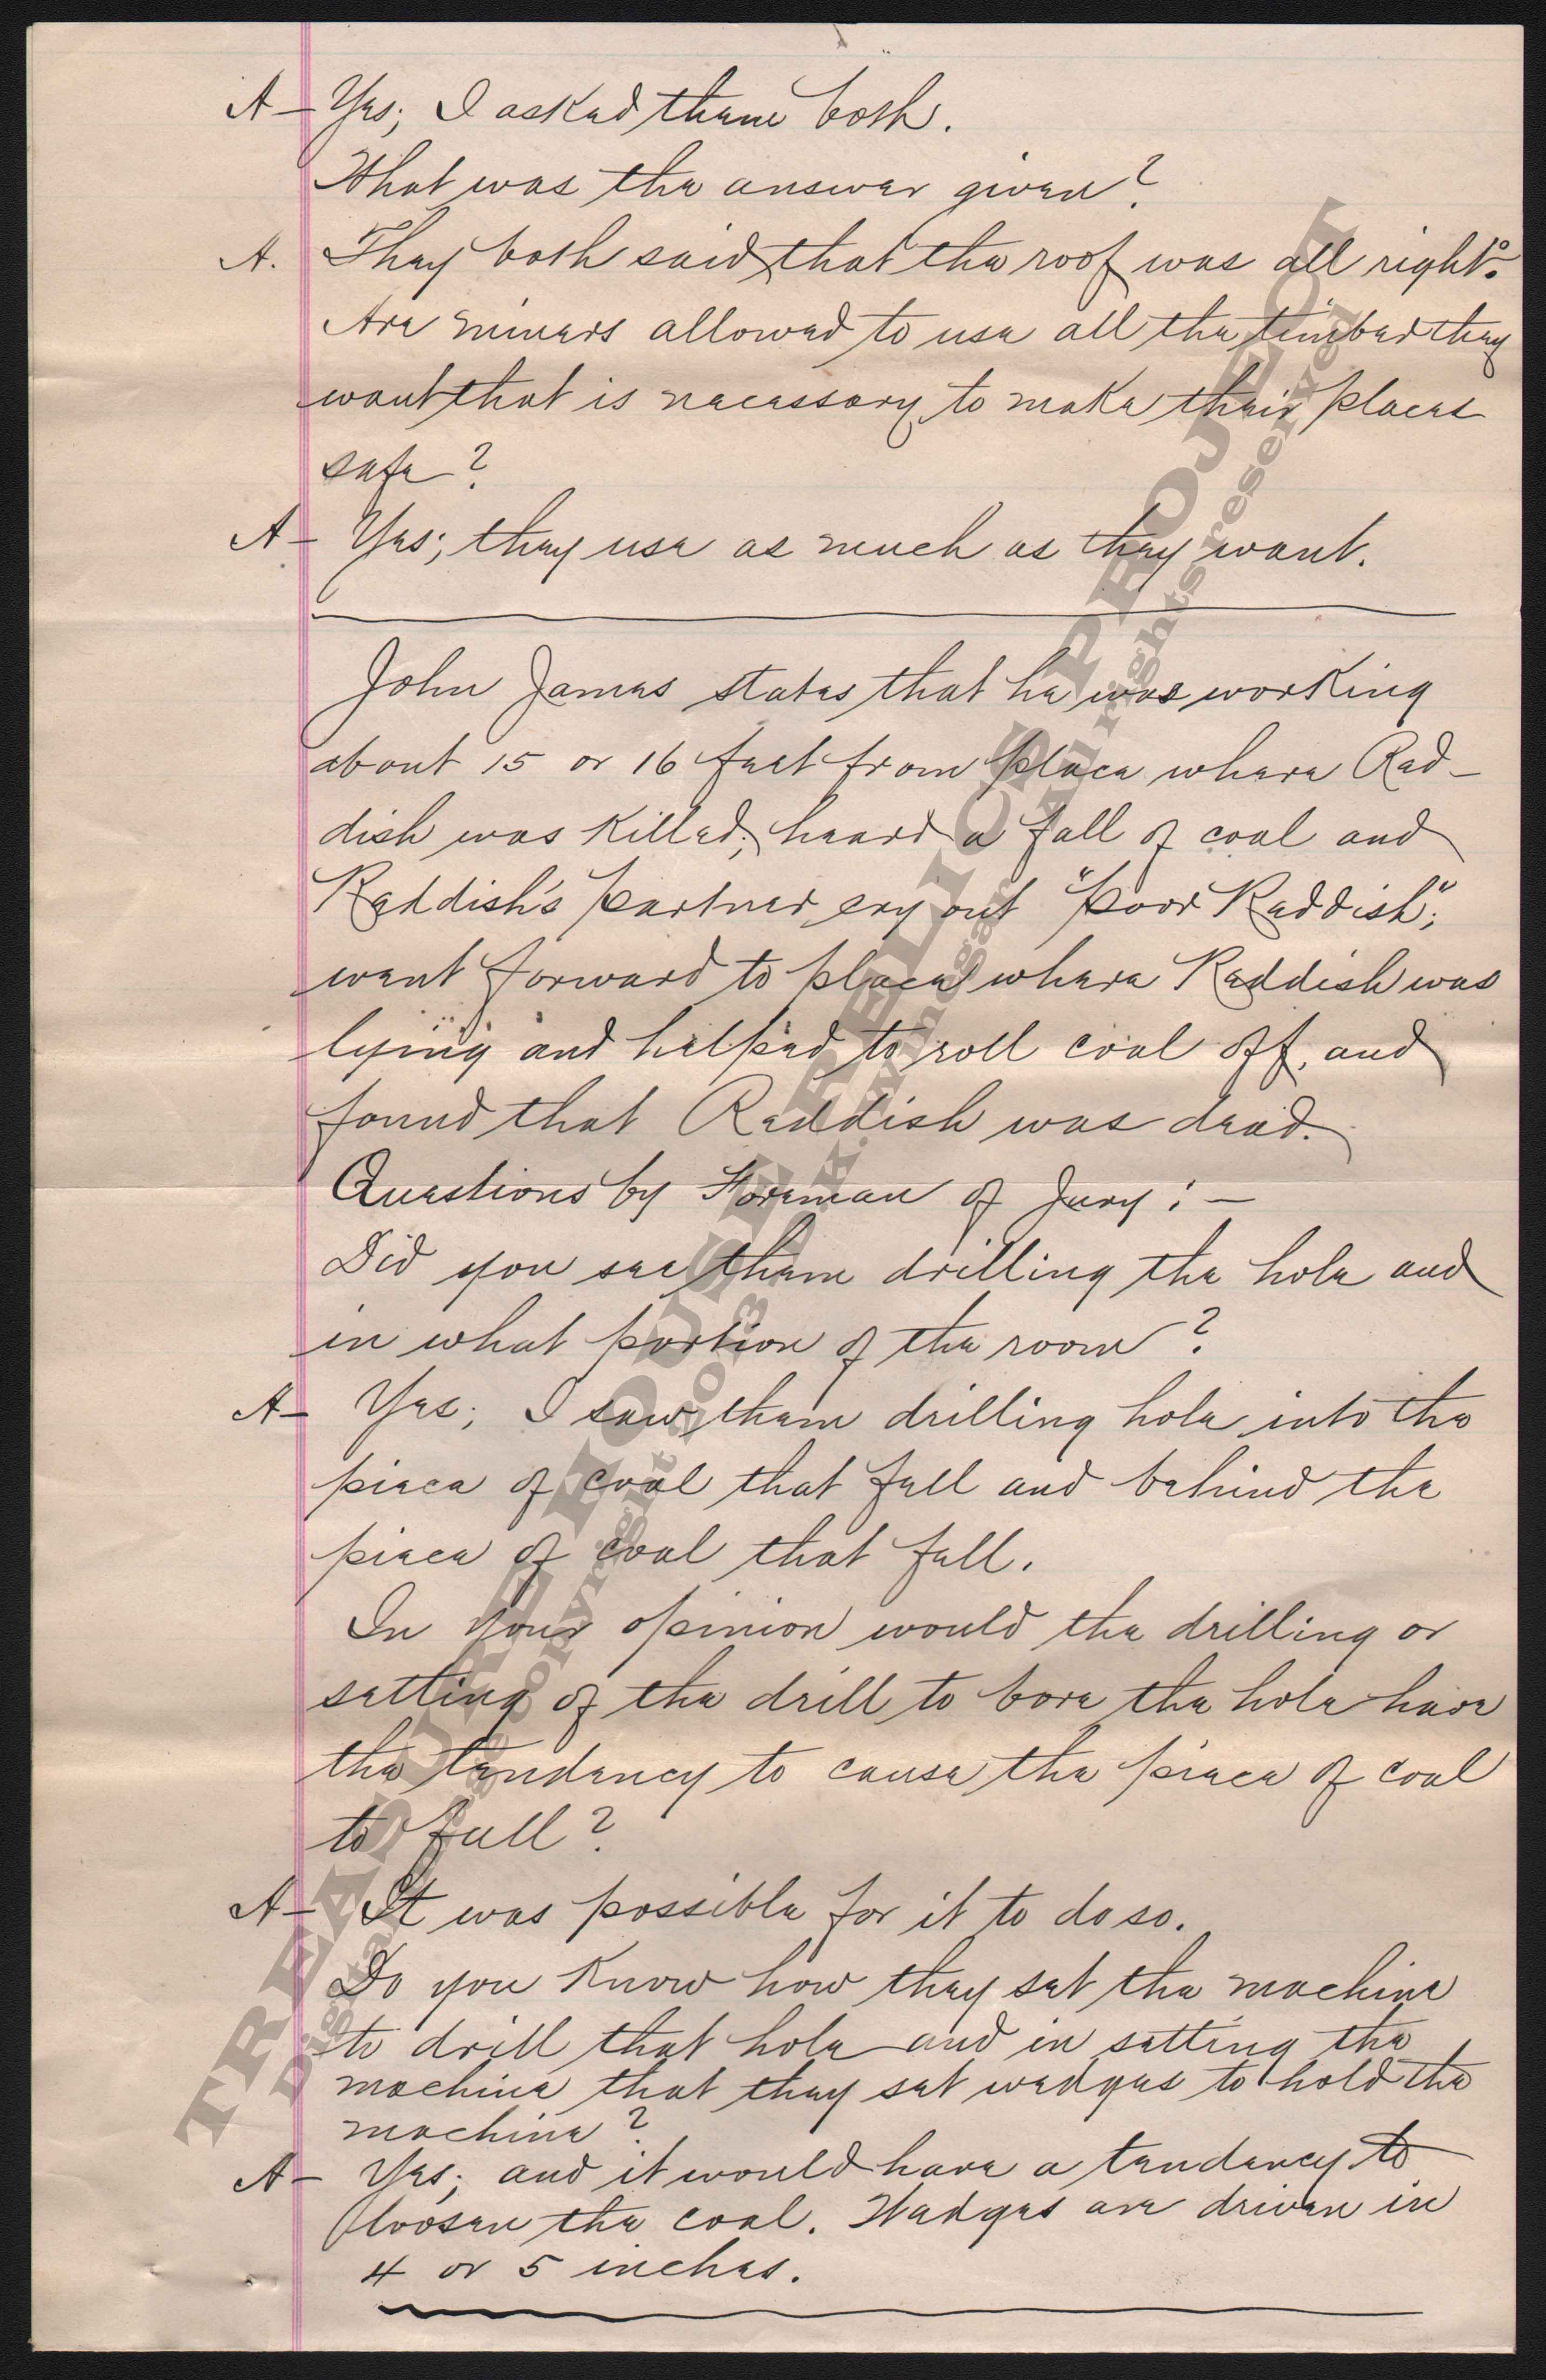 A- Yes; I asked them both.
What was the answer given?
A. They both said that the roof was all right.
Are miners allowed to use all the timber they
want that is necessary to make their places
safe?
A- Yes; they use as much as they want.
John James states that he was working
about 15 or 16 feet from place where Red-
dish was killed; heard a fall of coal and
Reddish's partner cry out "poor Reddish";
went forward to place where Reddish was
lying and helped to roll coal off, and
found that Reddish was dead.
Questions by Foreman of Jury:-
Did you see them drilling the hole and
in what portion of the room?
A- Yes; I saw them drilling hole into the
piece of coal that fell and behind the
piece of coal that fell.
In your opinion would the drilling or
setting of the drill to bore the hole have
the tendency to cause the piece of coal
to fall?
A- It was possible for it to do so.
Do you know how they set the machine
to drill that hole and in setting the
machine that they set wedges to hold the
machine?
A- Yes; and it would have a tendency to
loosen the coal. Wedges are driven in
4 or 5 inches.
TREASURE HOUSE RELICS PROJECT
All rights reserved